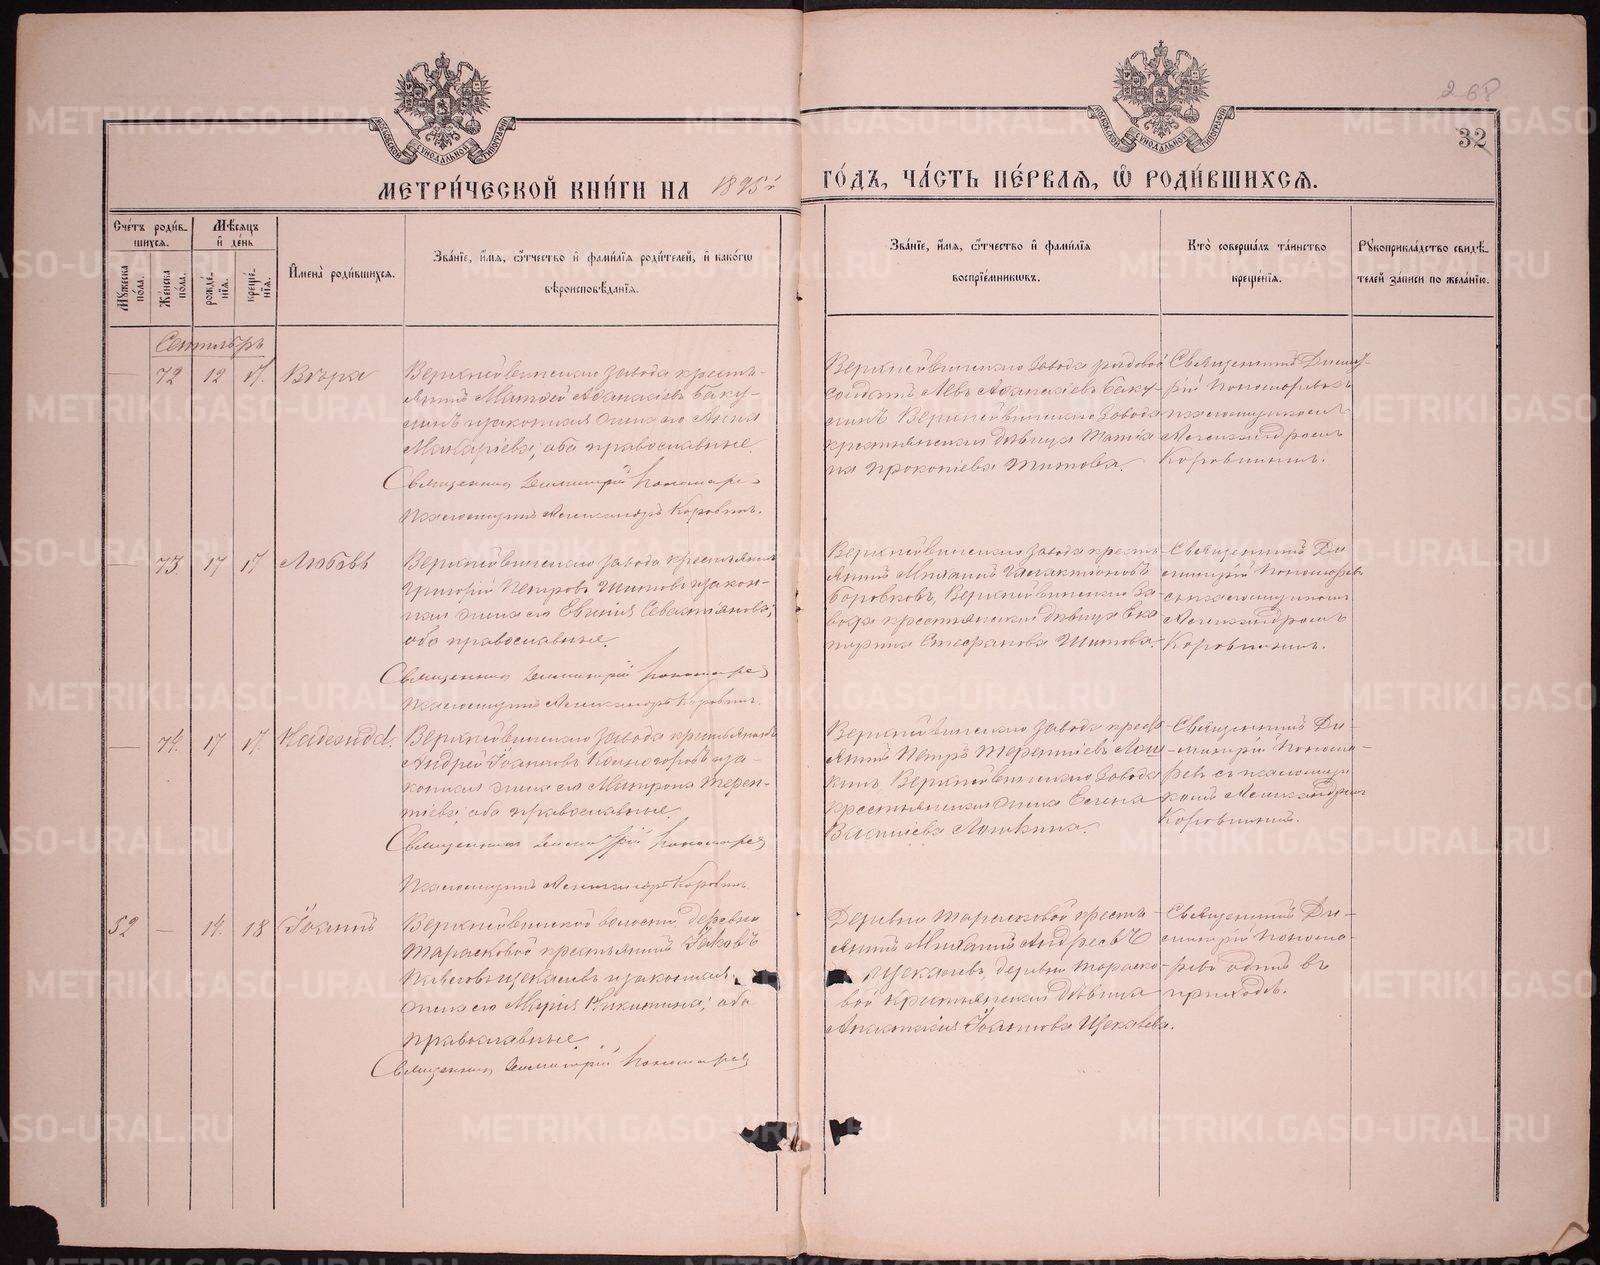 268
32
МОСКОВСКОЙ СѴНОДАЛЬНОЙ ТИПОГРАФІИ
МОСКОВСКОЙ СѴНОДАЛЬНОЙ ТИПОГРАФІИ
МЕТРИ́ЧЕСКОЙ КНИ́ГИ НА 1895 й
ГО́ДЪ, ЧА́СТЬ ПЕ́РВАЯ, Ѽ РОДИ́ВШИХСЯ.
Сче́тъ роди́в-
шихся.
Му́жеска по́ла.
Же́нска по́ла.
Мѣ́сяцъ
и҆ де́нь
рожде́-
нїя.
креще́-
нїя.
И҆мена̀ роди́вшихся.
Зва́нїе, и҆́мя, ѻ҆́тчество и҆ фами́лїя роди́телей, и҆ како́гѡ
вѣроисповѣ́данїя.
Зва́нїе, и҆́мя, ѻ҆́тчество и҆ фами́лїя
воспрїе́мниковъ.
Кто̀ соверша́лъ та́инство
креще́нїя.
Рꙋкоприкла́дство свидѣ́-
телей за́писи по жела́нїю.
Сентябрь
— 72 12 17. Вѣра
Верхнейвинскаго завода кресть-
янинъ Матѳей Аѳанасіевъ Баку-
нинъ и законная жена его Анна
Макаріева, оба православные.
Священникъ Димитрій Пономаре
Псаломщикъ Александръ Коровинъ.
Верхнейвинскаго завода рядовой
солдатъ Левъ Аѳанасіевъ Баку-
нинъ Верхнейвинскаго завода
крестьянская дѣвица Татiа
на Прокопіева Титова.
Священникъ Димит-
рій Пономаревъ съ
псаломщикомъ
Александромъ
Коровинымъ.
— 73. 17 17 Любовь
Верхнейвинскаго завода крестьянинъ
Григорій Петровъ Шитовъ и закон-
ная жена его Евгенія Севастьянова;
оба православные.
Священникъ Димитрій Пономаре
Псаломщикъ Александръ Коровинъ.
Верхнейвинскаго завода кресть-
янинъ Михаилъ Галактіоновъ
Боровковъ, Верхнейвинскаго за-
вода крестьянская дѣвица Ека
терина Стефанова Шитова.
Священникъ Ди
митрій Пономаревъ
съ псаломщикомъ
Александромъ
Коровинымъ.
— 74. 17 17. Надежда.
Верхнейвинскаго завода крестьянинъ
Андрей Іоанновъ и за-
конная жена его Матрона Терен-
тіева; оба православные.
Священникъ Димитрій Пономаре
Псаломщикъ Александръ Коровинъ
Верхнейвинскаго завода кресть
янинъ Петръ Терентіевъ Лош-
кинъ Верхнейвинскаго завода
крестьянская жена Елена
Василіева Лошкина.
Священникъ Ди-
митрій Понома-
ревъ съ псаломщи
комъ Александромъ
Коровинымъ.
52 — 14. 18 Іоаннъ
Верхнейвинской волости, деревни
Тарасковой крестьянинъ Іаковъ
Павловъ Щекалевъ и законная
жена его Марія Никитина; оба
православные.
Священникъ Димитрій Пономаре
Деревни Тарасковой кресть-
янинъ Михаилъ Андреевъ
Щекалевъ, деревни Тараско-
вой крестьянская дѣвица
Анастасія Іоаннова Щекалева.
Священникъ Ди-
митрій Понома-
ревъ одинъ въ
приходѣ.
METRIKI.GASO-URAL.RU